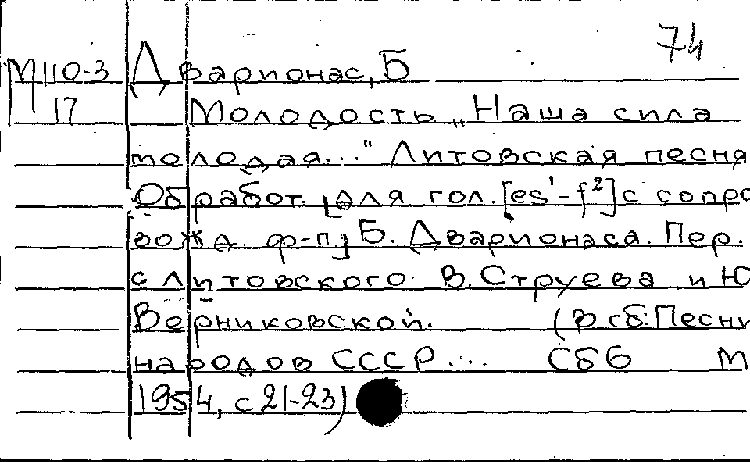 74
М110-3 Дварионас, Б
17 Молодость „Наша сила
молодая..." Литовская песня
Обработ. [для гол. [es¹-f²] с сопро
вожд ф-п] Б. Дварионаса. Пер.
с литовского В. Струева и Ю
Верниковской. (В сб: Песни
народов СССР... Сб6 М
1954, с 21-23)